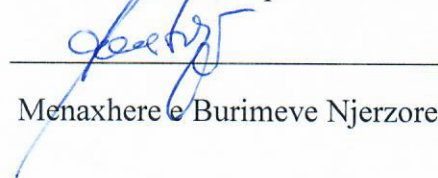 Menaxhere e Burimeve Njerzore